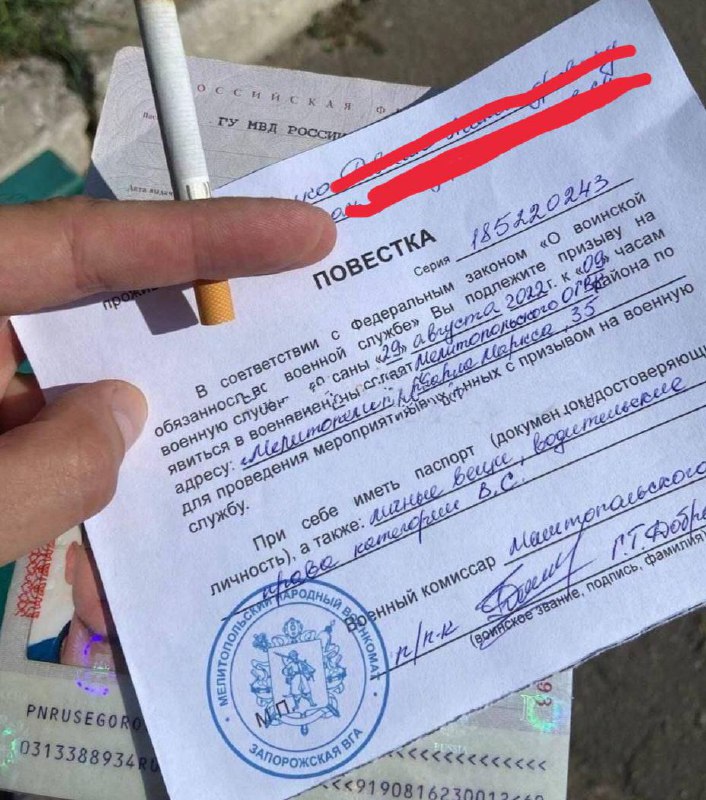 РОССИЙСКАЯ Ф
ГУ МВД РОССИИ
Дата выдачи
ПОВЕСТКА
Серия 185220243
В соответствии с Федеральным законом «О воинской
обязанность военной службе» Вы подлежите призыву на
военную службу «29» августа 2022 г. к «09» часам
явиться в Мелитопольского ОГВК района по
адресу: «Мелитополь Карла Маркса, 35
для проведения мероприятий с призывом на военную
службу.
При себе иметь паспорт (документ, удостоверяющ
личность), а также: личные вещи, водительские
права категории В, С.
Военный комиссар Мелитопольского
п/п-к Г.Т. Добр
(воинское звание, подпись, фамилия)
М.П.
МЕЛИТОПОЛЬСКИЙ НАРОДНЫЙ ВОЕНКОМАТ
ЗАПОРОЖСКАЯ ВГА
PNRUSEGORO
0313388934RU
<<<<<<<<<<<<
<<<9190816230013